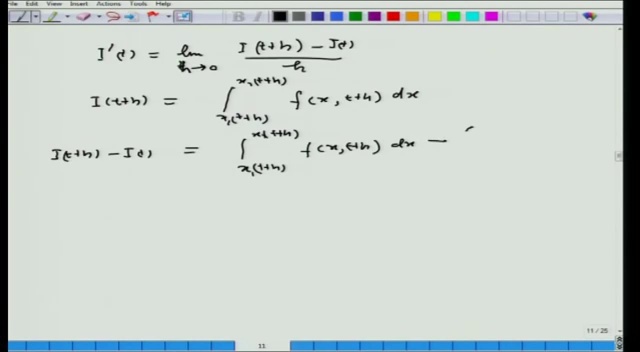 File Edit View Insert Actions Tools Help
I'(t) = lim h→0 (I(t+h) − I(t)) / h
I(t+h) = ∫_{x₁(t+h)}^{x₂(t+h)} f(x, t+h) dx
I(t+h) − I(t) = ∫_{x₁(t+h)}^{x₂(t+h)} f(x, t+h) dx −
11 / 25
11